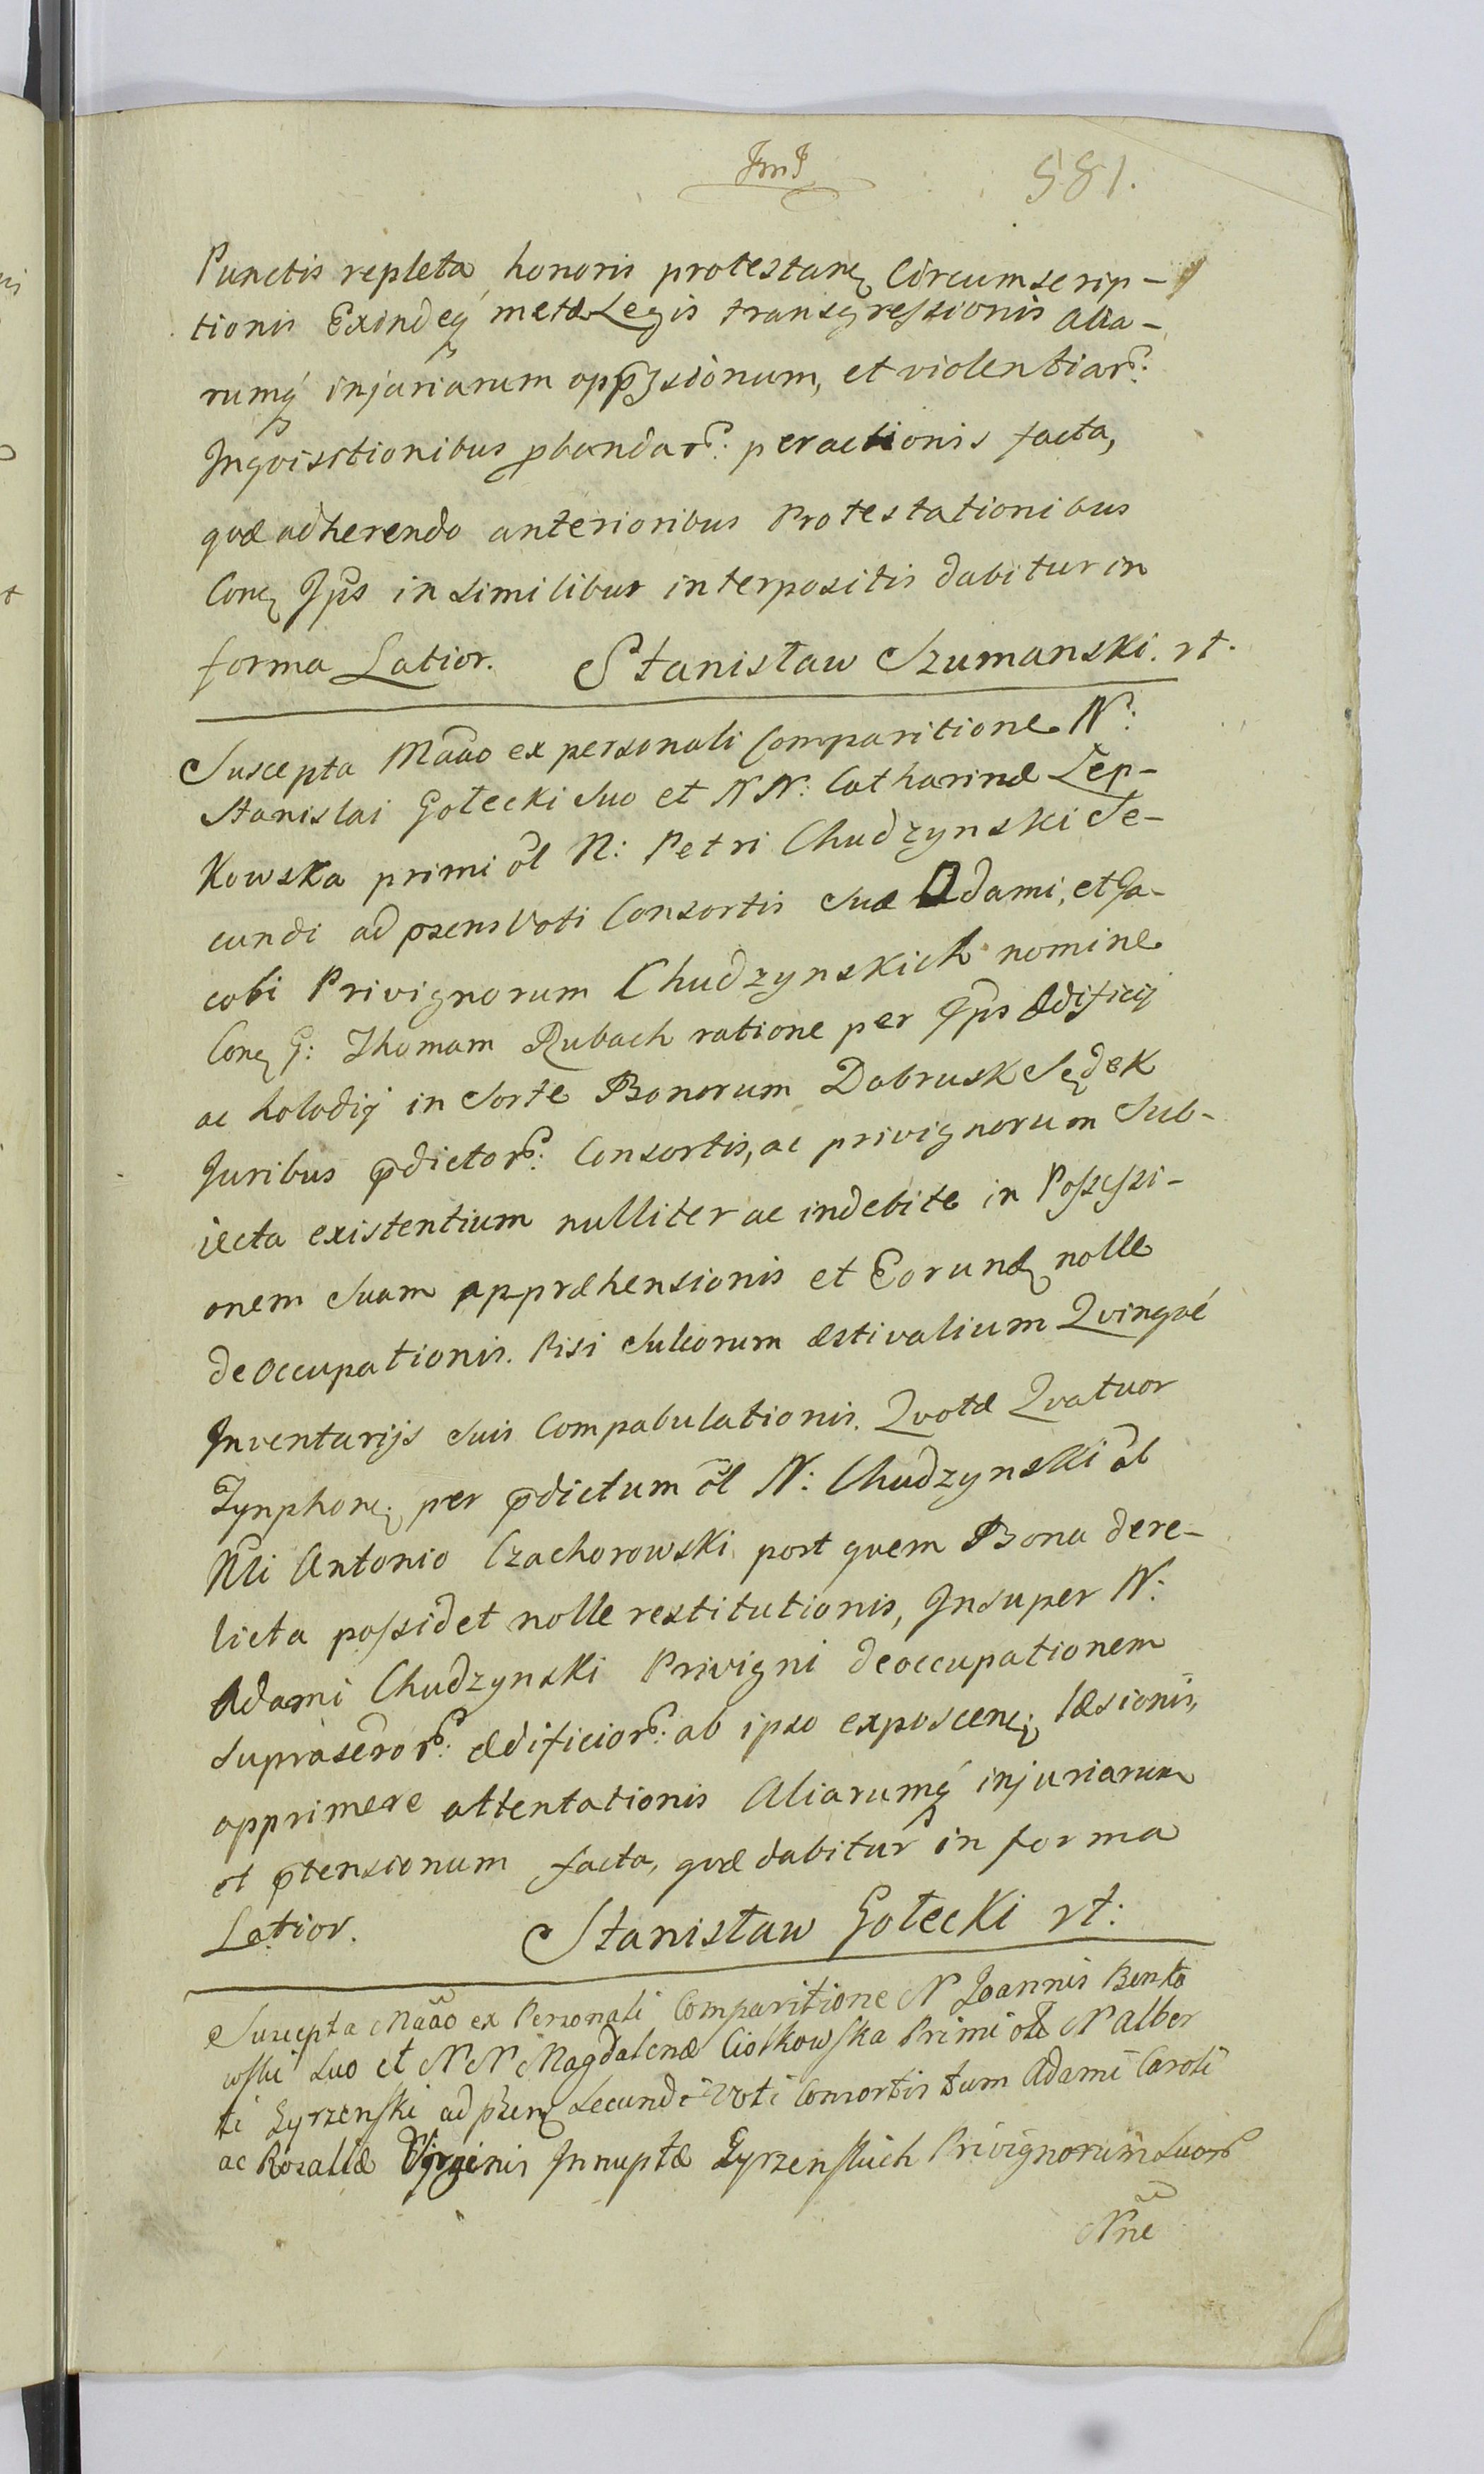 581.
Punctis repleta honoris protestanꝫ Circumscrip-
tionis Exindeqꝫ metæ Legis transgressionis alia-
rumqꝫ injuriarum oppͦssionum, et violentiarꝫ:
Inqvisitionibus ꝓbandarꝫ: peractionis facta,
qvæ adherendo anterioribus Protestationibus
Conꝫ Ip̄s in similibus interpositis dabitur in
forma Latior. Stanisław Szumanski. rt.
Suscepta Ma̅ao ex personali Comparitione N:
Stanislai Gołecki suo et NN: Catharinæ Lep-
kowska primi o̅l N: Petri Chudzynski Se-
cundi ad p̄sens Voti Consortis suæ Adami, et Ja-
cobi Privignorum Chudzynskich nomine
Conꝫ G: Thomam Rubach ratione per Ip̄s Ædificij
ac holodij in Sorte Bonorum Dobrusk Sędek
Juribus p̄dictorꝫ: Consortis, ac privignorum Sub-
iecta existentium nulliter ac indebite in Possessi-
onem suam appræhensionis et Eorundꝫ nolle
deoccupationis. Pisi sulcorum æstivalium Qvinqvé
Inventarijs suis Compabulationis. Qvotæ Qvatuor
Tynphonꝫ per p̄dictum o̅l N: Chudzynski ab
Nli Antonio Czachorowski post qvem Bona dere-
licta possidet nolle restitutionis, Insuper N:
Adami Chudzynski Privigni deoccupationem
suprascrorꝫ: ædificiorꝫ: ab ipso exposcenꝫ læsionis,
opprimere attentationis Aliarumqꝫ injuriarum
et p̄tensionum facta, qvæ dabitur in forma
Latior. Stanisław Gołecki rt:
Suscepta Ma̅ao ex Personali Comparitione N Joannis Benko
wski suo et NN Magdalenæ Ciołkowska Primi olı N Alber
ti Zyrzenski ad p̄senꝫ Secundi Voti Consortis tum Adami Caroli
ac Rozaliæ Virginis Innuptæ Zyrzenskich Privignorum suorꝫ
N̅ne